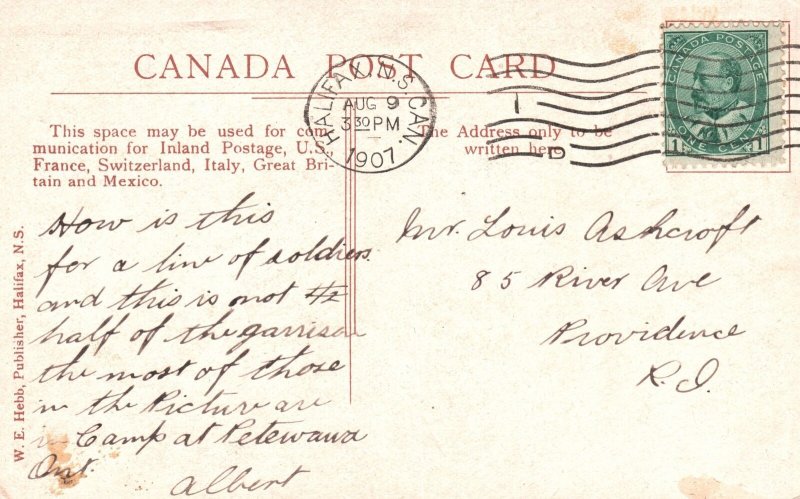 CANADA POST CARD
HALIFAX. N.S. CAN.
AUG 9
3 30 PM
1907
1
D
CANADA POSTAGE
1 ONE CENT 1
This space may be used for com-
munication for Inland Postage, U.S.,
France, Switzerland, Italy, Great Bri-
tain and Mexico.
The Address only to be
written here
W. E. Hebb, Publisher, Halifax, N.S.
How is this
for a line of soldiers.
and this is not
half of the garrison
the most of those
in the Picture are
in Camp at Petewawa
Ont.
Albert
Mr. Louis Ashcroft
85 River Ave
Providence
R.I.